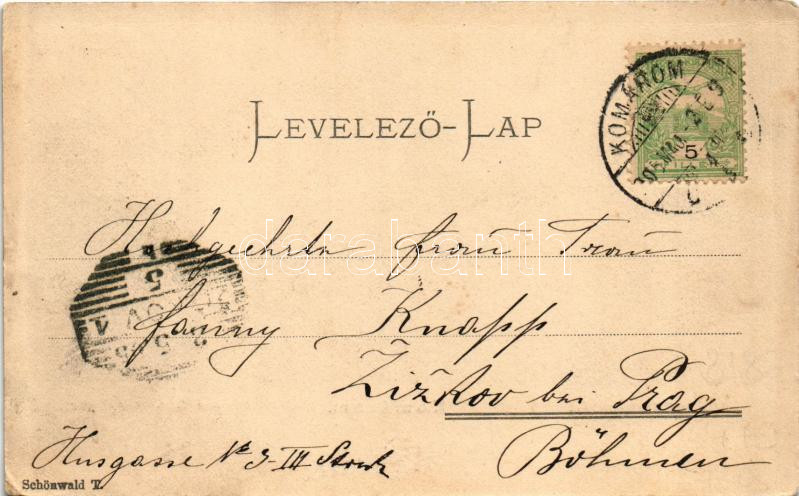 LEVELEZŐ-LAP
KOMÁROM
5
darabanth
Hochgeehrte Frau Frau
Fanny Knapp
Žižkov bei Prag
Böhmen
Husgasse No 3 III Stock
Schönwald T.